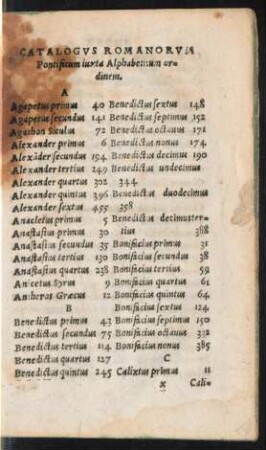 CATALOGVS ROMANORVM
Pontificum iuxta Alphabetum or-
dinem.
A
Agapetus primus 40
Agapetus secundus 141
Agathon Siculus 72
Alexander primus 6
Alexāder secundus 194
Alexander tertius 249
Alexander quartus 302
Alexander quintus 396
Alexander sextus 455
Anacletus primus 5
Anastasius primus 30
Anastasius secundus 35
Anastasius tertius 130
Anastasius quartus 238
Anicetus Syrus 9
Antheros Græcus 12
B
Benedictus primus 43
Benedictus secundus 75
Benedictus tertius 114
Benedictus quartus 127
Benedictus quintus 245
Benedictus sextus 148
Benedictus septimus 152
Benedictus octauus 171
Benedictus nonus 174
Benedictus decimus 190
Benedictus undecimus
344
Benedictus duodecimus
358
Benedictus decimuster-
tius 388
Bonifacius primus 31
Bonifacius secundus 38
Bonifacius tertius 59
Bonifacius quartus 61
Bonifacius quintus 64
Bonifacius sextus 124
Bonifacius septimus 150
Bonifacius octauus 332
Bonifacius nonus 385
C
Calixtus primus 11
x Cali-